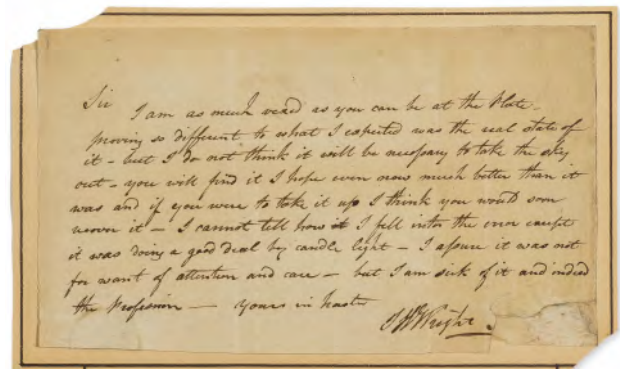 Sir I am as much vexd as you can be at the Plate
proving so different to what I expected was the real state of
it - but I do not think it will be necessary to take the sky
out - you will find it I hope even now much better than it
was and if you were to take it up I think you would soon
recover it - I cannot tell how it I fell into the error except
it was doing a good deal by candle light - I assure it was not
for want of attention and care - but I am sick of it and indeed
the Profession — yours in haste
J H Wright